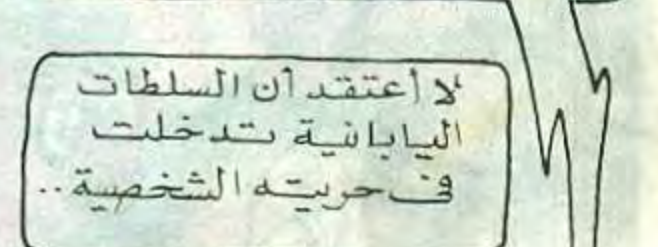 لا أعتقد أن السلطات
اليابانية تدخلت
فى حريته الشخصية ..